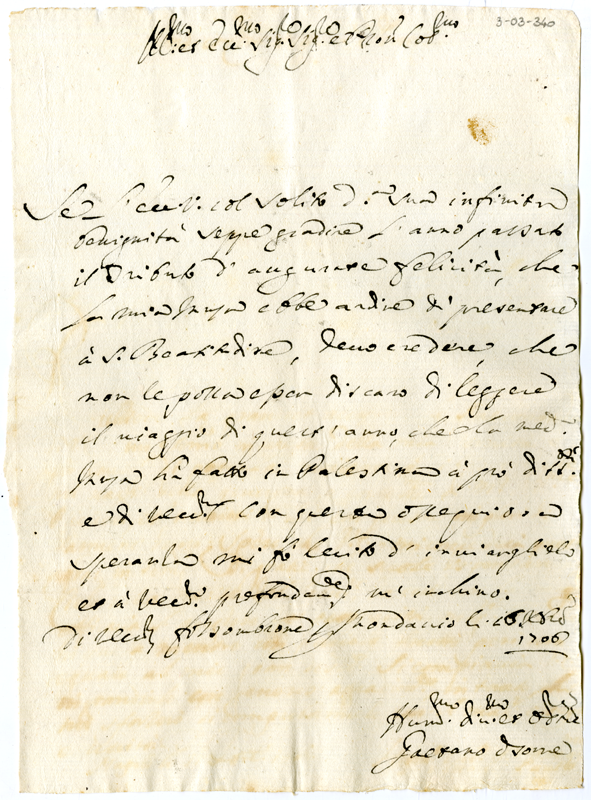 3-03-340
Ill.mo et Ecc.mo Sig.r Sig.r et Pron Col.mo
Se l'Ecc. V. col solito d. sua infinita
benignità seppe gradire l'anno passato
il tributo d'augurate felicità, che
la mia Musa ebbe ardire di presentare
à S. Beatitudine, devo credere, che
non le possa esser discaro di leggere
il viaggio di quest'anno, che la med.a
Musa hà fatto in Palestina à prò di
e di V. Ecc. Con questa ossequiosa
speranza mi fò lecito d'inviarglielo
et à V. Ecc. profondam.e m'inchino.
Di V. Ecc. Fossombrone li
1706
Hum.mo di.mo et
Gaetano